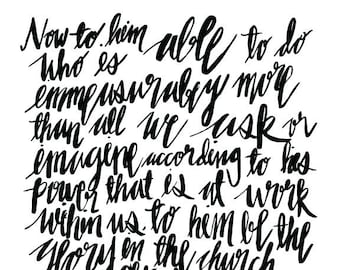 Now to him
who is able to do
immeasurably more
than all we ask or
imagine according to his
power that is at work
within us to him be the
glory in the church